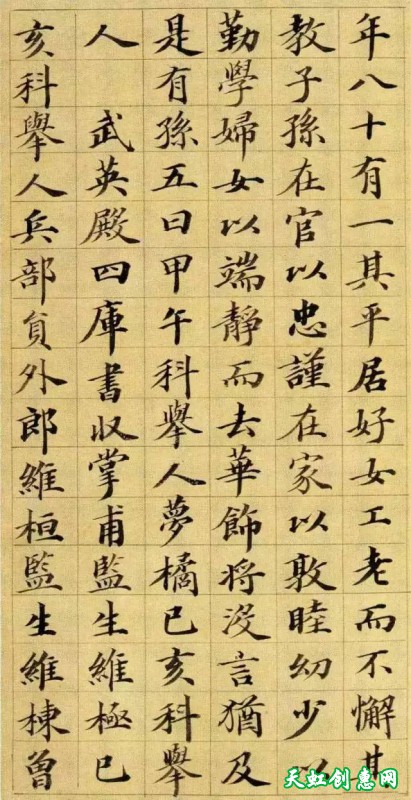 年八十有一其平居好女工老而不懈其
教子孫在官以忠謹在家以敦睦幼少以
勤學婦女以端靜而去華飾將没言猶及
是有孫五曰甲午科舉人夢橘已亥科舉
人 武英殿四庫書収掌甫監生維極已
亥科舉人兵部貟外郎維桓監生維棟曾
天虹创惠网